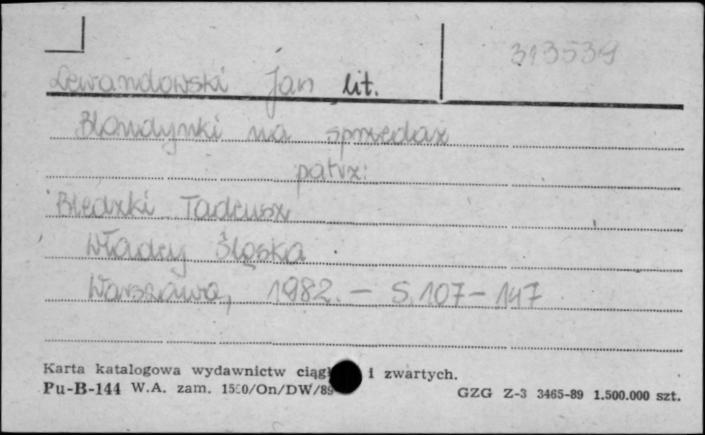 313539
Lewandowski Jan lit.
Blondynki na sprzedaż
patrz:
Biedzki Tadeusz
Władcy Śląska
Warszawa, 1982. - S. 107-147
Karta katalogowa wydawnictw i zwartych.
Pu-B-144 W.A. zam. GZG Z-3 3465-89 1.500.000 szt.